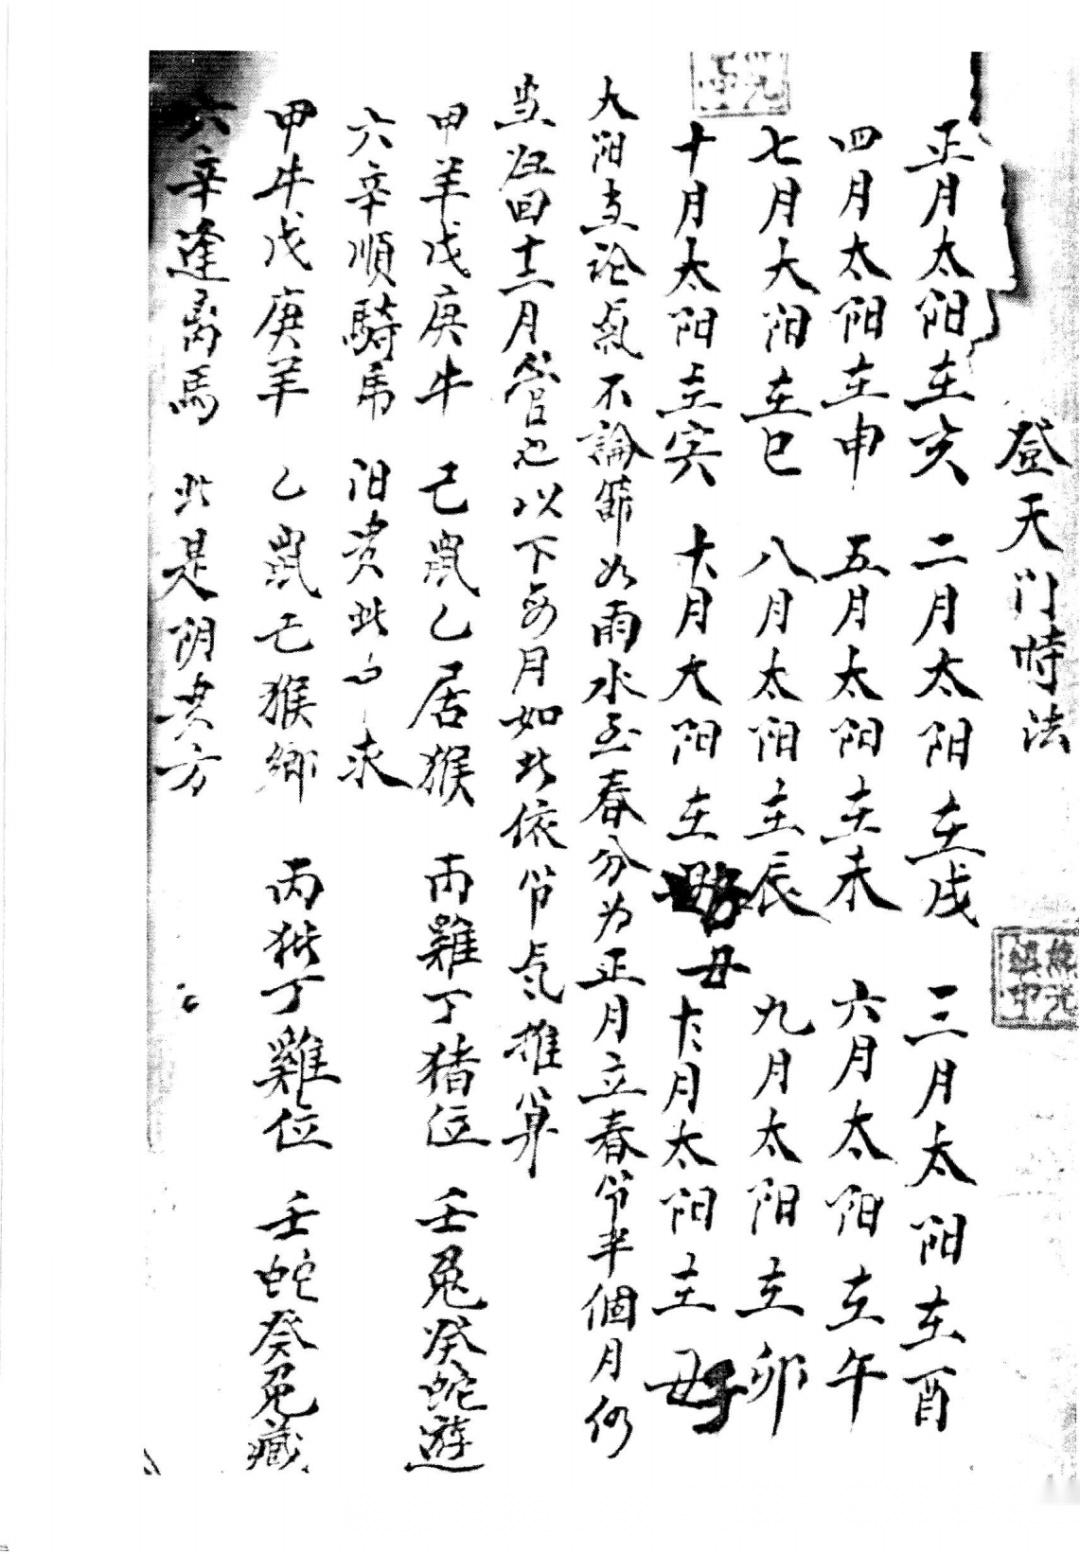 登天门時法
正月太阳在亥 二月太阳在戌 三月太阳在酉
四月太阳在申 五月太阳在未 六月太阳在午
七月太阳在巳 八月太阳在辰 九月太阳在卯
十月太阳在寅 十一月太阳在丑 十二月太阳在子
太阳玄论氣不論節如雨水至春分为正月立春节半個月仍
当旧十二月管也以下每月如此依节氣推算
甲羊戊庚牛 己鼠乙居猴 丙雞丁猪位 壬兔癸蛇遊
六辛順騎馬 阳贵此中求
甲牛戊庚羊 乙鼠己猴鄉 丙猪丁雞位 壬蛇癸兔藏
六辛逢离馬 此是阴贵方